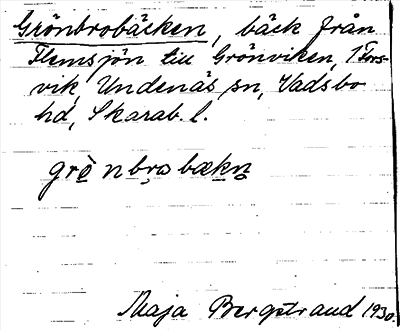 Grönbrobäcken, bäck från
Flemsjön till Grönviken, 1 Fors-
vik, Undenäs sn, Vadsbo
hd, Skarab. l.
grè̱nbro bækn̥
Maja Bergstrand 1930.